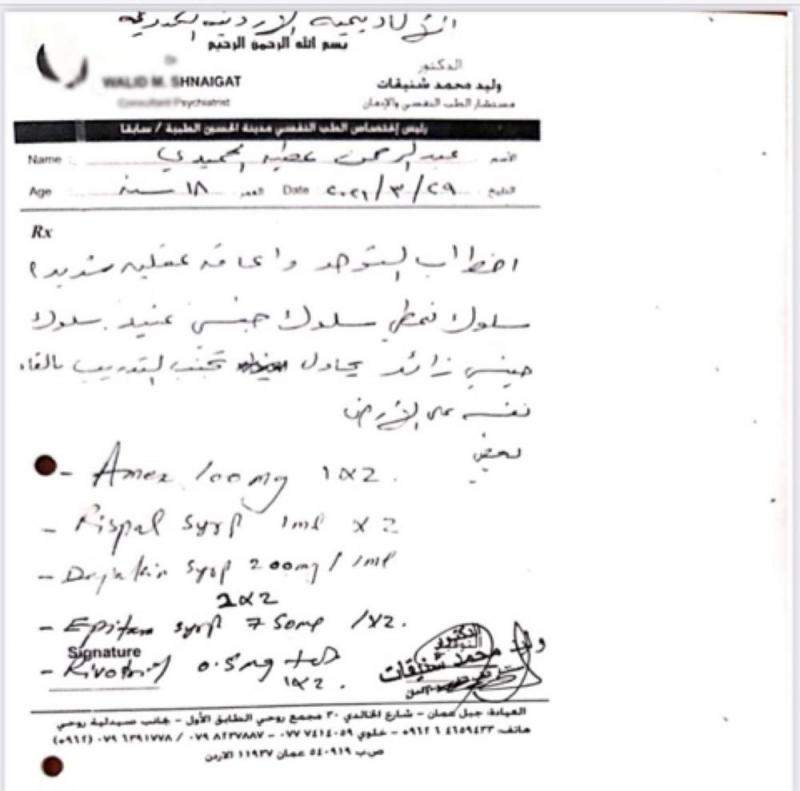 الأكاديمية الأردنية الكندية
بسم الله الرحمن الرحيم
Dr
WALID M. SHNAIGAT
Consultant Psychiatrist
الدكتور
وليد محمد شنيقات
مستشار الطب النفسي والإدمان
رئيس إختصاص الطب النفسي مدينة الحسين الطبية / سابقا
Name : عبد الرحمن عطيه الحميدي الأسم
Age ١٨ سنة العمر Date ٢٠٢١/٣/٢٩ التاريخ
Rx
اضطراب التوحد واعاقه عقليه شديده
سلوك نمطي سلوك جنسي عنيد سلوك
جنسي زائد يحاول تجنب التدريب بالقاء
نفسه على الأرض
يعض
- Amez 100 mg 1x2.
- Rispal syrp 1ml x 2
- syrp 200mg / 1ml
2x2
- Epitam syrp 750mg 1x2.
Signature
- Rivotril 0.5mg tab
1x2.
الدكتور
وليد محمد شنيقات
العيادة: جبل عمان - شارع الخالدي ٣٠ مجمع روحي الطابق الأول - جانب صيدلية روحي
هاتف: ٤٦٥٩٤٣٣ ٦ ٩٦٢+ - خلوي ٧٤١٤٠٥٩ ٠٧٧ - ٨٢٣٧٨٨٧ ٠٧٩ / ٦٣٩١٧٧٨ ٠٧٩ (٩٦٢+)
ص.ب ٥٤٠٩١٩ عمان ١١٩٣٧ الاردن